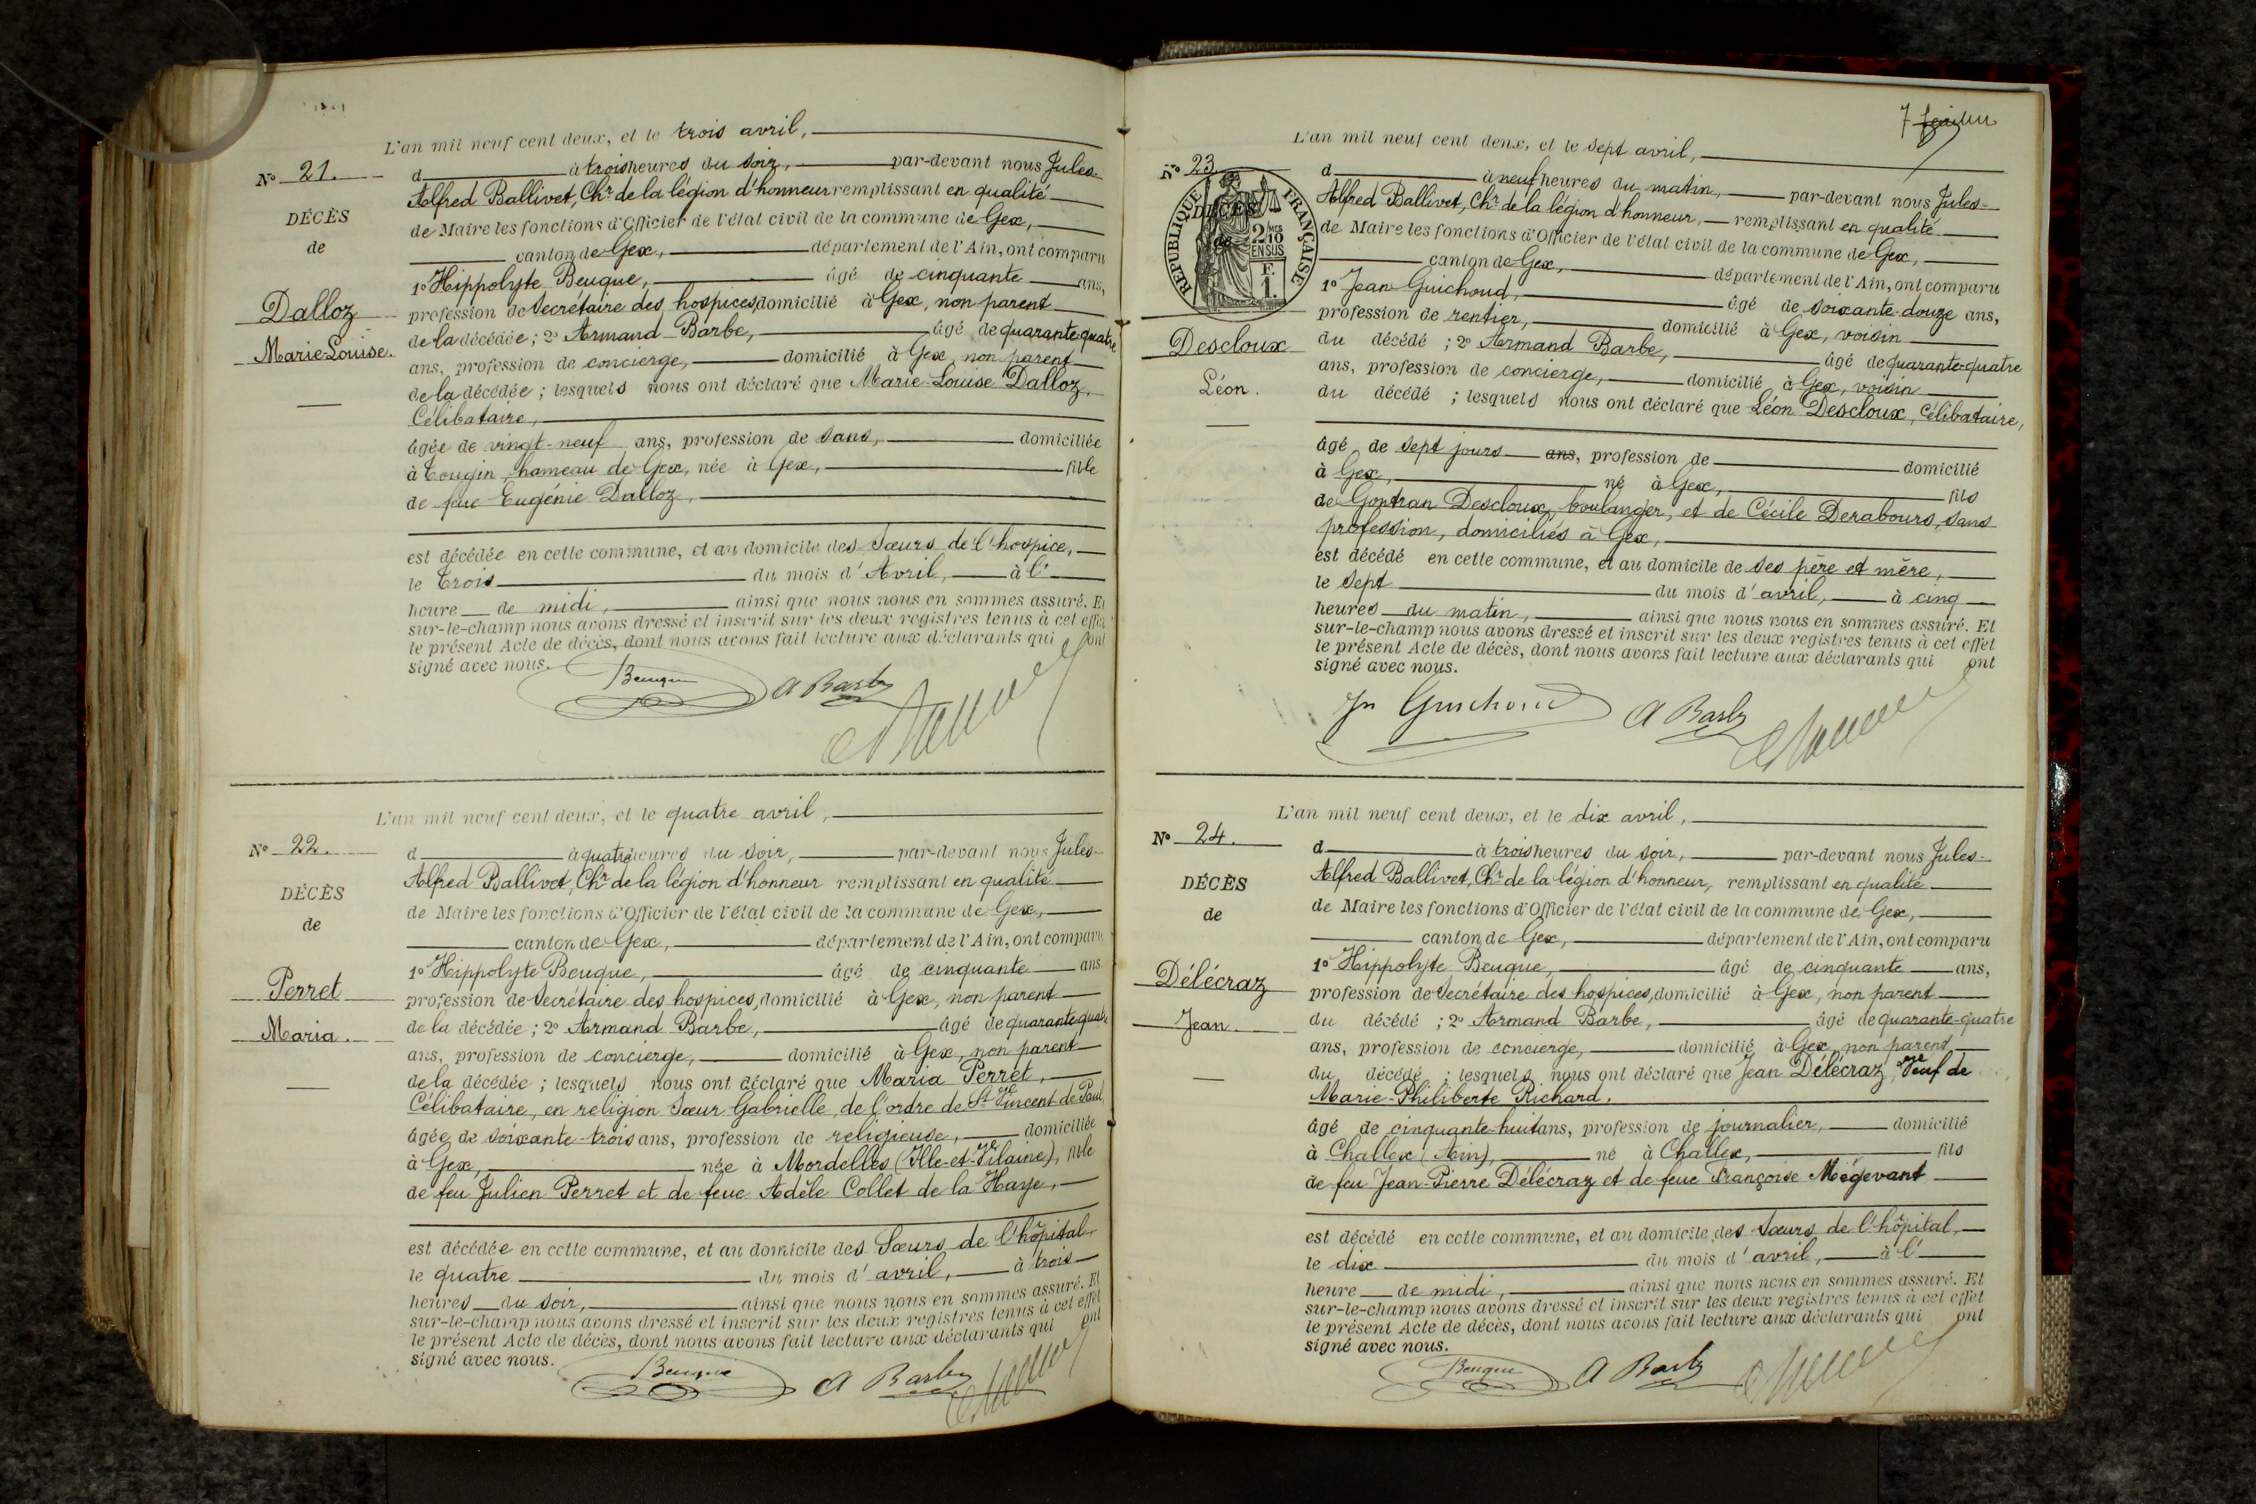 L'an mil neuf cent deux, et le trois avril,
N° 21.
d à trois heures du soir, par-devant nous Jules-
Alfred Ballivet, Chr de la légion d'honneur remplissant en qualité
DÉCÈS
de Maire les fonctions d'Officier de l'état civil de la commune de Gex,
de
canton de Gex, département de l'Ain, ont comparu
1° Hippolyte Beuque, âgé de cinquante ans,
Dalloz
profession de Secrétaire des hospices, domicilié à Gex, non parent
de la décédée ; 2° Armand Barbe, âgé de quarante-quatre
Marie-Louise.
ans, profession de concierge, domicilié à Gex, non parent
de la décédée ; lesquels nous ont déclaré que Marie-Louise Dalloz,
Célibataire,
âgée de vingt-neuf ans, profession de sans, domiciliée
à Tougin, hameau de Gex, née à Gex, fille
de feue Eugénie Dalloz,
est décédée en cette commune, et au domicile des Sœurs de l'hospice,
le trois du mois d'Avril, à l'
heure de midi, ainsi que nous nous en sommes assuré. Et
sur-le-champ nous avons dressé et inscrit sur les deux registres tenus à cet effet
le présent Acte de décès, dont nous avons fait lecture aux déclarants qui ont
signé avec nous.
Beuque A Barbe
L'an mil neuf cent deux, et le quatre avril,
N° 22.
d à quatre heures du soir, par-devant nous Jules-
Alfred Ballivet, Chr de la légion d'honneur remplissant en qualité
DÉCÈS
de Maire les fonctions d'Officier de l'état civil de la commune de Gex,
de
canton de Gex, département de l'Ain, ont comparu
1° Hippolyte Beuque, âgé de cinquante ans
Perret
profession de Secrétaire des hospices, domicilié à Gex, non parent
de la décédée ; 2° Armand Barbe, âgé de quarante-quatre
Maria.
ans, profession de concierge, domicilié à Gex, non parent
de la décédée ; lesquels nous ont déclaré que Maria Perret,
Célibataire, en religion Sœur Gabrielle, de l'ordre de St Vincent de Paul,
âgée de soixante-trois ans, profession de religieuse, domiciliée
à Gex, née à Mordelles (Ille-et-Vilaine), fille
de feu Julien Perret et de feue Adèle Collet de la Haye,
est décédée en cette commune, et au domicile des Sœurs de l'hôpital,
le quatre du mois d'avril, à trois
heures du soir, ainsi que nous nous en sommes assuré. Et
sur-le-champ nous avons dressé et inscrit sur les deux registres tenus à cet effet
le présent Acte de décès, dont nous avons fait lecture aux déclarants qui ont
signé avec nous.
Beuque A Barbe
7
L'an mil neuf cent deux, et le sept avril,
N° 23
d à neuf heures du matin, par-devant nous Jules-
Alfred Ballivet, Chr de la légion d'honneur, remplissant en qualité
RÉPUBLIQUE FRANÇAISE
2 MES 10 EN SUS
F. 1
DÉCÈS
de Maire les fonctions d'Officier de l'état civil de la commune de Gex,
de
canton de Gex, département de l'Ain, ont comparu
1° Jean Guichoud, âgé de soixante-douze ans,
profession de rentier, domicilié à Gex, voisin
Descloux
du décédé ; 2° Armand Barbe, âgé de quarante-quatre
ans, profession de concierge, domicilié à Gex, voisin
Léon.
du décédé ; lesquels nous ont déclaré que Léon Descloux, Célibataire,
âgé de sept jours ans, profession de domicilié
à Gex, né à Gex, fils
de Gontran Descloux, boulanger, et de Cécile Derabours, sans
profession, domiciliés à Gex,
est décédé en cette commune, et au domicile de ses père et mère,
le sept du mois d'avril, à cinq
heures du matin, ainsi que nous nous en sommes assuré. Et
sur-le-champ nous avons dressé et inscrit sur les deux registres tenus à cet effet
le présent Acte de décès, dont nous avons fait lecture aux déclarants qui ont
signé avec nous.
Jn Guichoud A Barbe
L'an mil neuf cent deux, et le dix avril,
N° 24.
d à trois heures du soir, par-devant nous Jules-
Alfred Ballivet, Chr de la légion d'honneur, remplissant en qualité
DÉCÈS
de Maire les fonctions d'Officier de l'état civil de la commune de Gex,
de
canton de Gex, département de l'Ain, ont comparu
1° Hippolyte Beuque, âgé de cinquante ans,
Délécraz
profession de Secrétaire des hospices, domicilié à Gex, non parent
du décédé ; 2° Armand Barbe, âgé de quarante-quatre
Jean.
ans, profession de concierge, domicilié à Gex, non parent
du décédé ; lesquels nous ont déclaré que Jean Délécraz, Veuf de
Marie-Philiberte Richard.
âgé de cinquante-huit ans, profession de journalier, domicilié
à Challex (Ain), né à Challex, fils
de feu Jean-Pierre Délécraz et de feue Françoise Mégevant
est décédé en cette commune, et au domicile des Sœurs de l'hôpital,
le dix du mois d'avril, à l'
heure de midi, ainsi que nous nous en sommes assuré. Et
sur-le-champ nous avons dressé et inscrit sur les deux registres tenus à cet effet
le présent Acte de décès, dont nous avons fait lecture aux déclarants qui ont
signé avec nous.
Beuque A Barbe